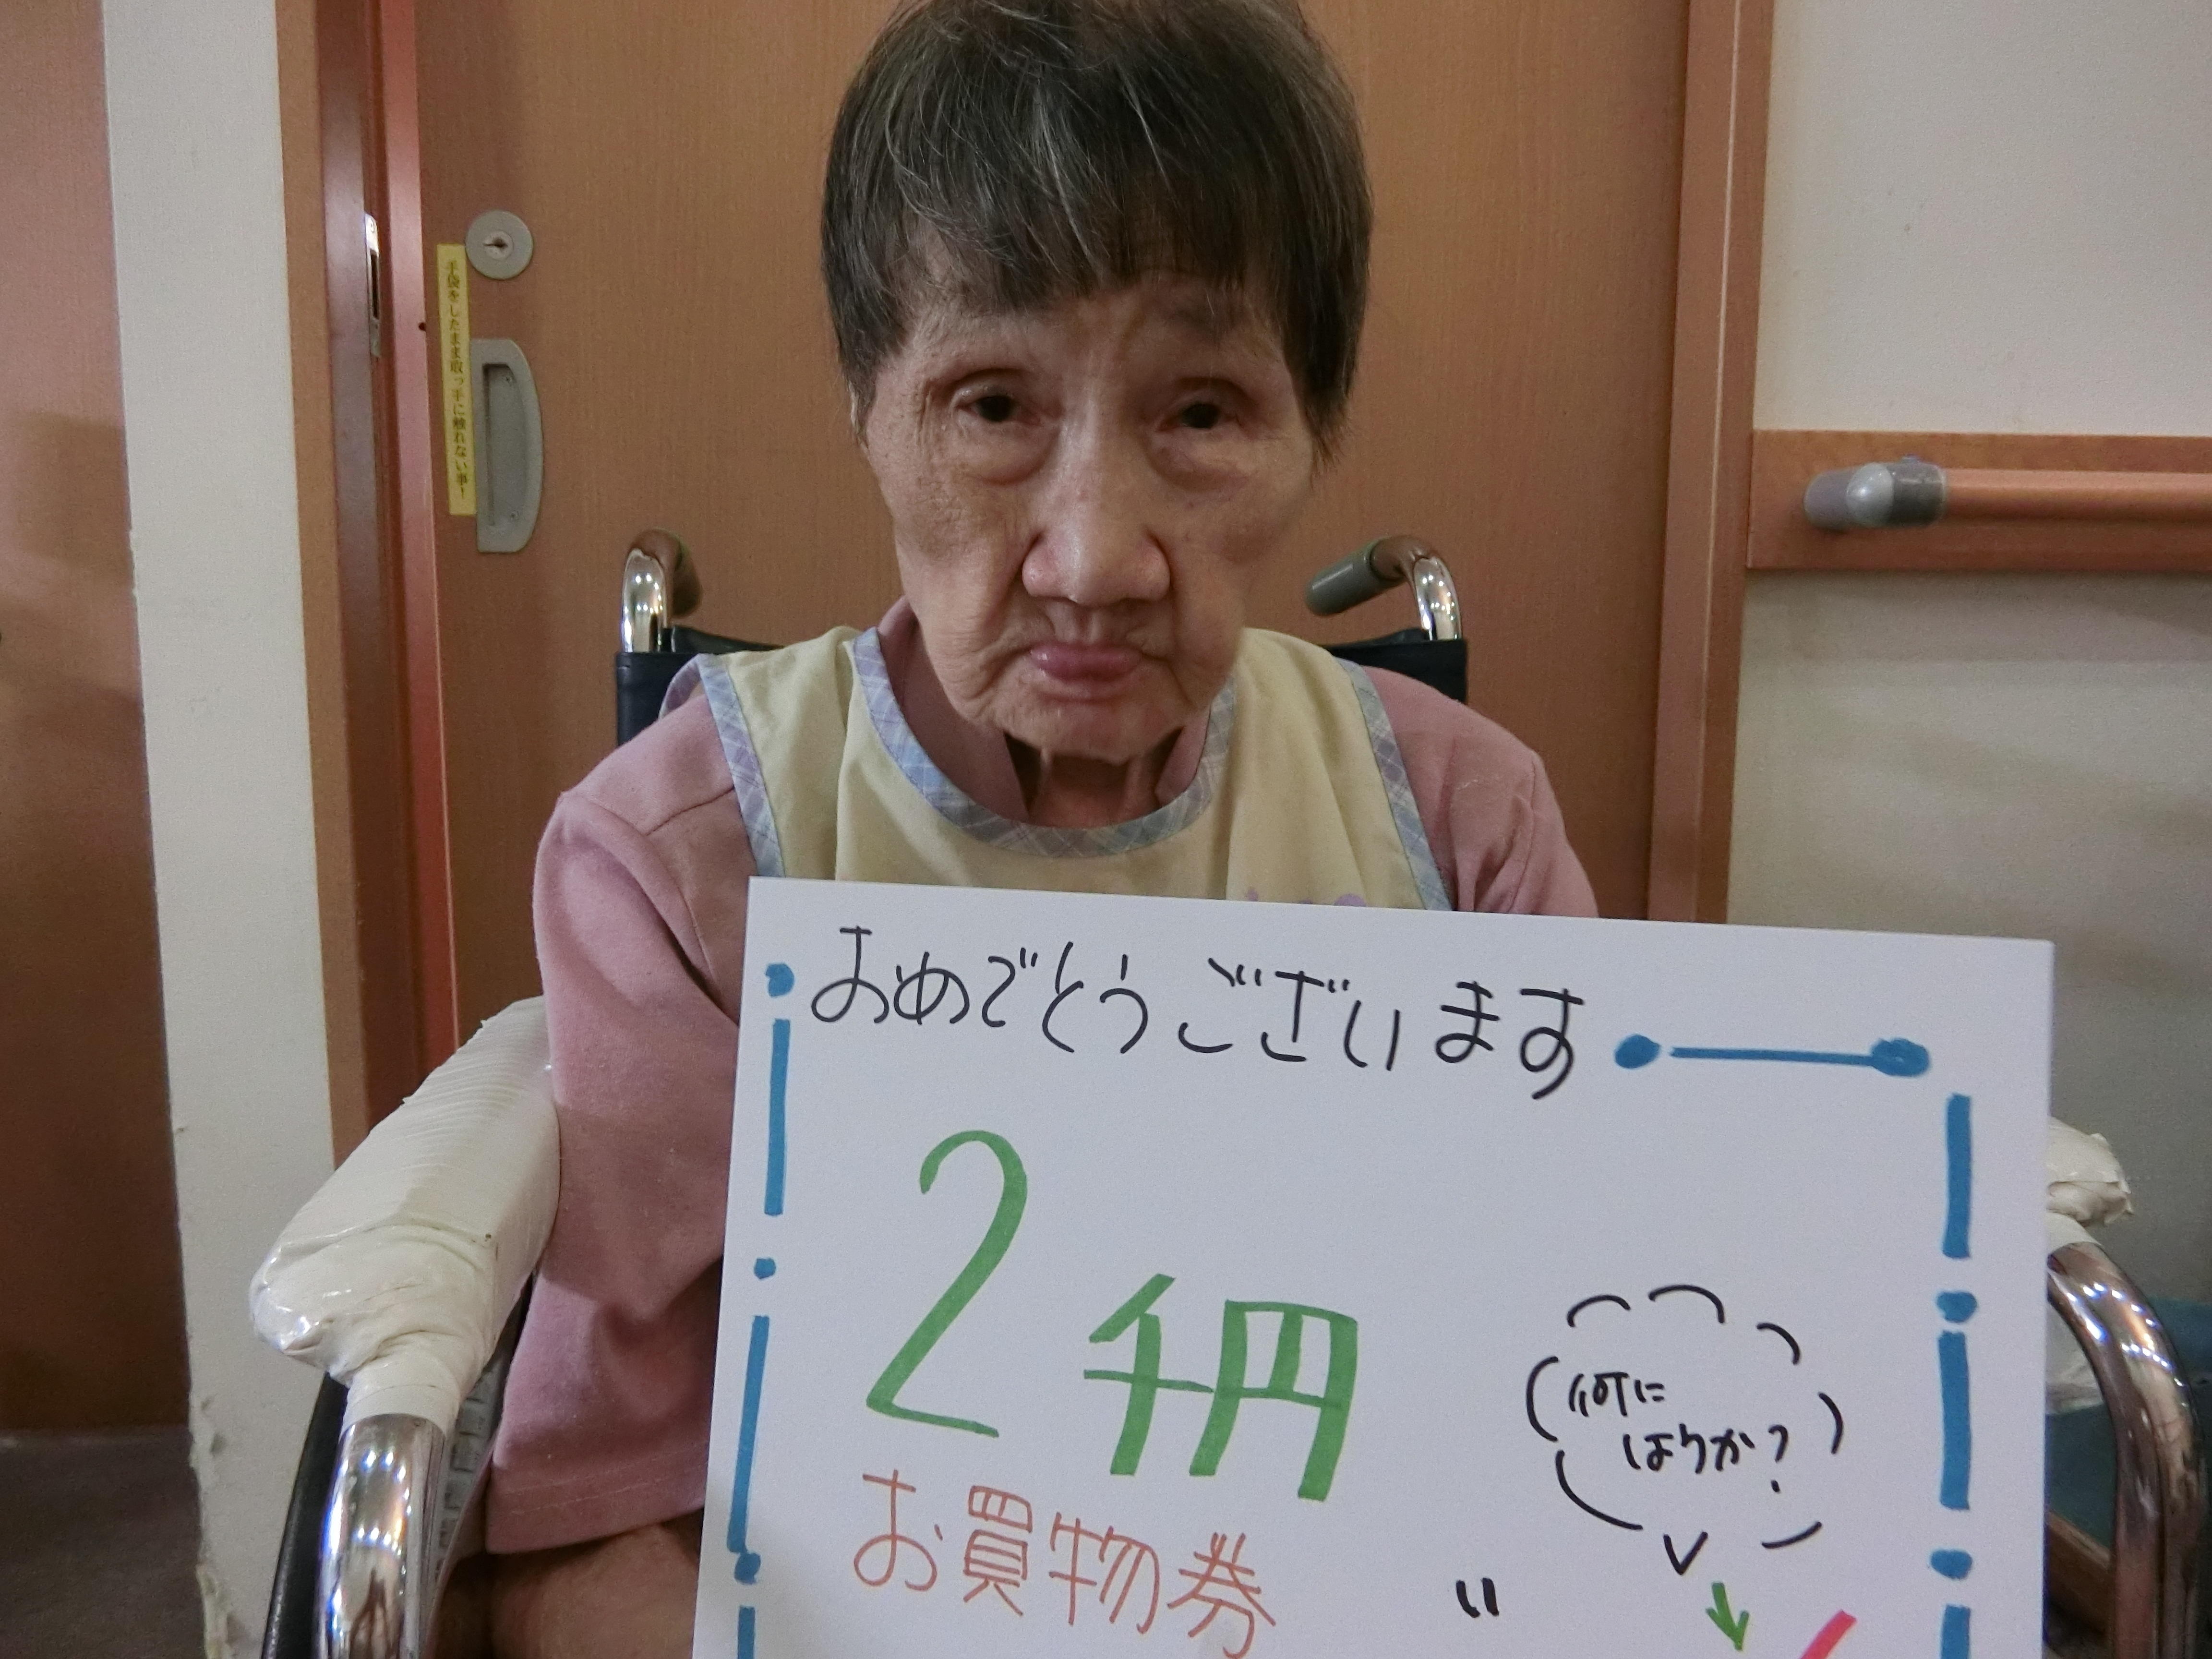 手袋をしたまま取っ手に触れない事!
おめでとうございます
2千円
お買物券
何に
はうか?